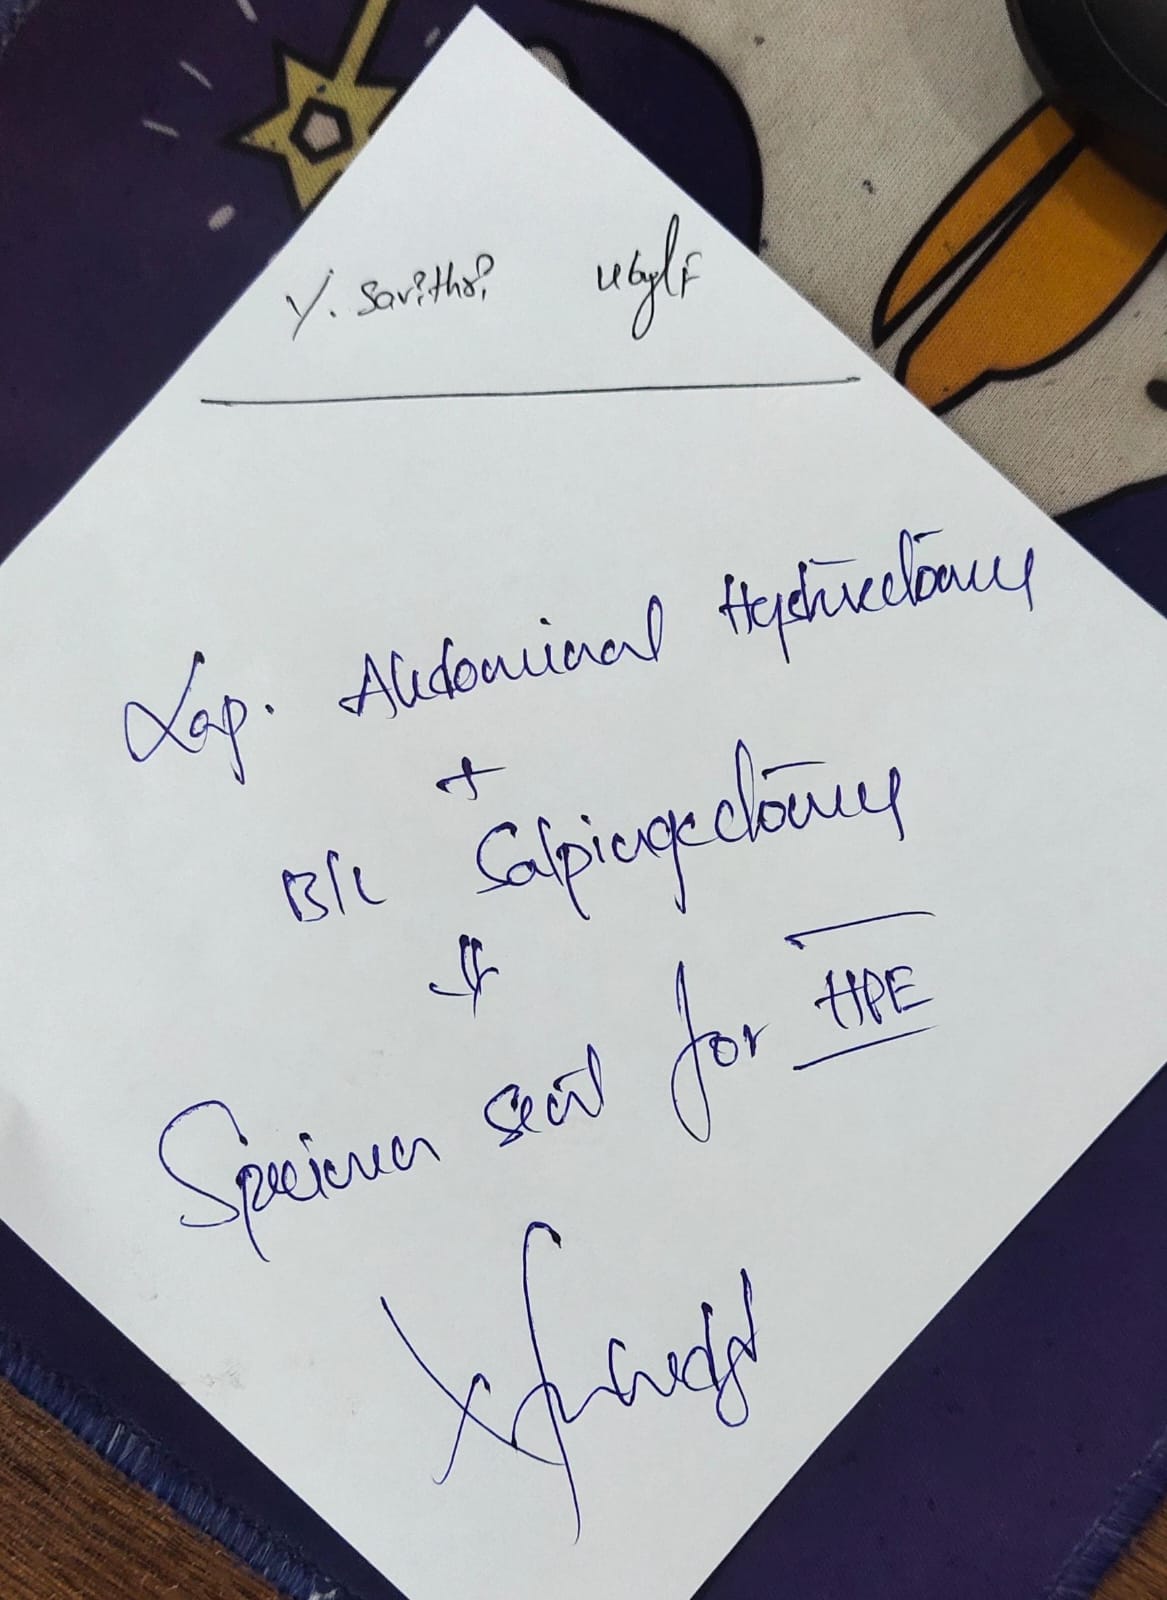 Y. Savithri 46y/F
Lap. Abdominal Hysterectomy
+
B/L Salpingectomy
↓
Specimen sent for HPE